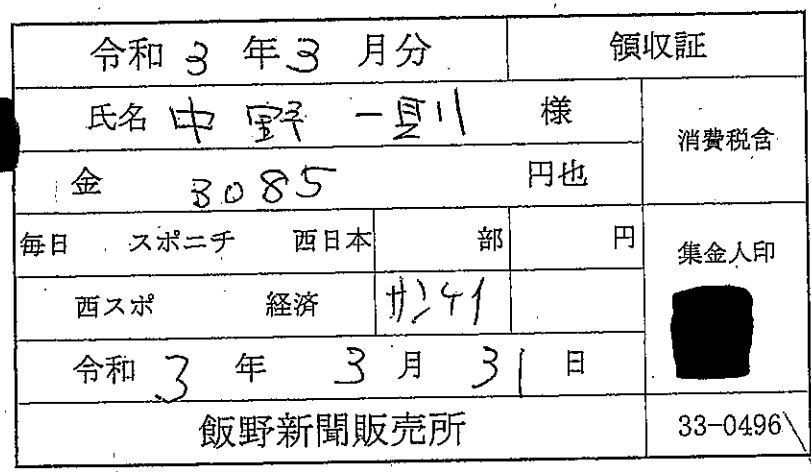 令和 3 年 3 月分 領収証
氏名 中野 一 様
消費税含
金 3085 円也
毎日 スポニチ 西日本 部 円
集金人印
西スポ 経済 サンケイ
令和 3 年 3 月 31 日
飯野新聞販売所 33-0496